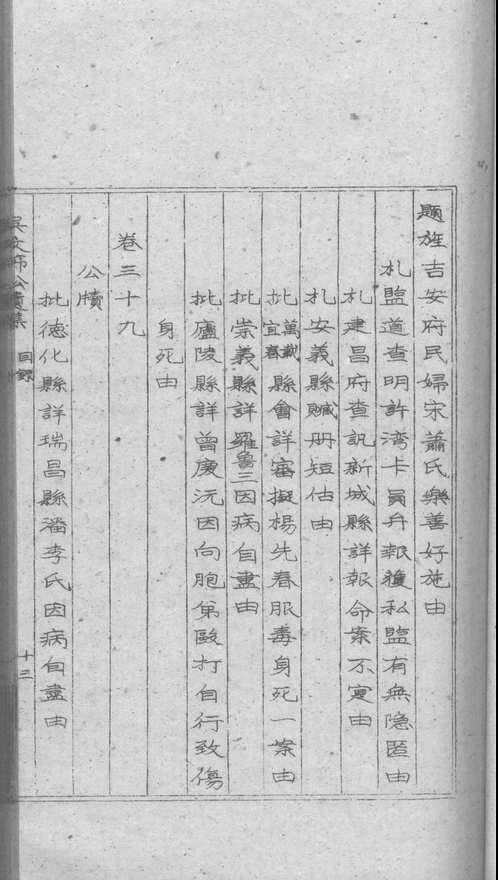 題旌吉安府民婦宋蕭氏樂善好施由
札鹽道查明許湾卡員弁報獲私鹽有無隐匿由
札建昌府查訊新城縣詳報命案不寔由
札安義縣贓册短估由
批萬載宜春縣會詳審擬楊先春服毒身死一案由
批崇義縣詳羅魯三因病自盡由
批廬陵縣詳曾庚沅因向胞弟毆打自行致傷
身死由
卷三十九
公牘
批德化縣詳瑞昌縣潘李氏因病自盡由
吳文節公遺集
目錄
十三